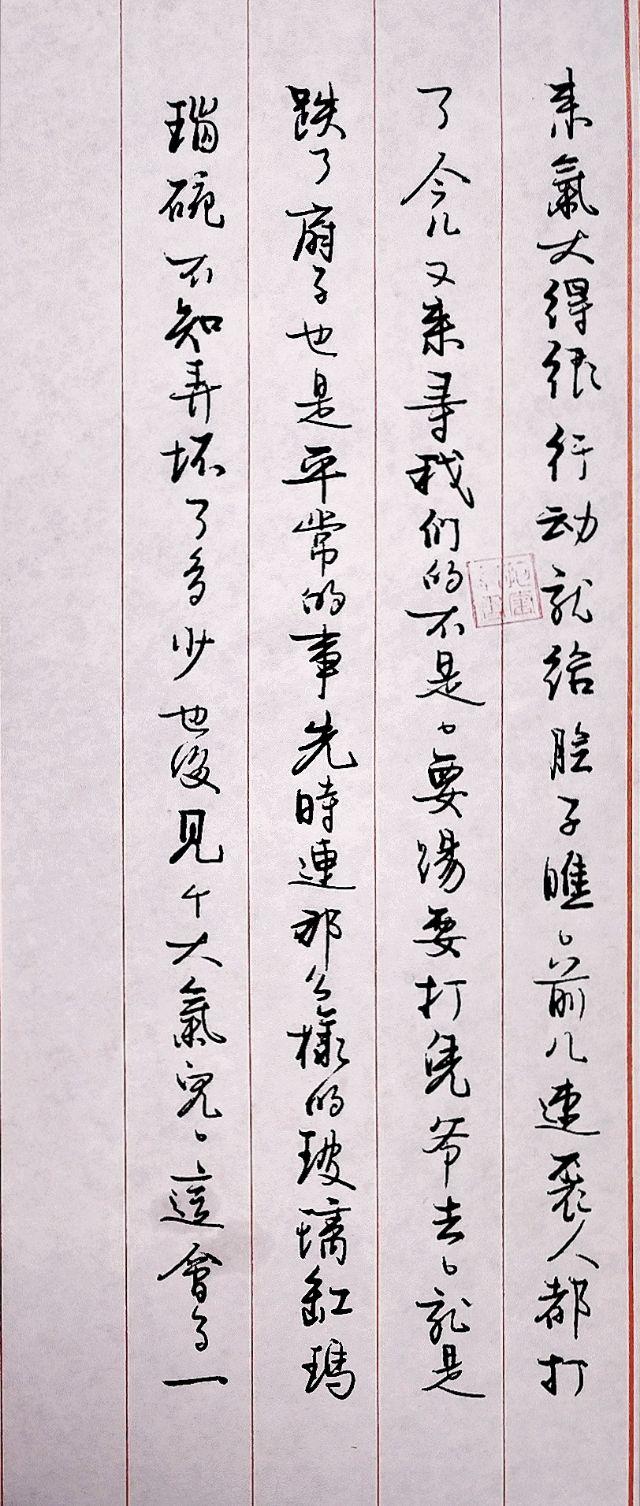 来氣大得很行动就给脸子瞧、前儿連袭人都打
了今儿又来寻我们的不是、要踢要打凭爷去、就是
跌了扇子也是平常的事先時連那么樣的玻璃缸瑪
瑙碗不知弄坏了多少也没見个大氣兒、這會子一